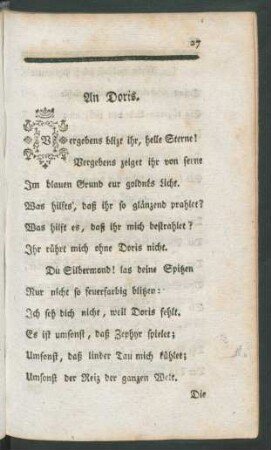 27
An Doris.
Vergebens blizt ihr, helle Sterne!
Vergebens zeiget ihr von ferne
Im blauen Grund eur goldnes Licht.
Was hilfts, daß ihr so glänzend prahlet?
Was hilft es, daß ihr mich bestrahlet?
Ihr rührt mich ohne Doris nicht.
Du Silbermond! las deine Spitzen
Nur nicht so feuerfarbig blitzen:
Ich seh dich nicht, weil Doris fehlt.
Es ist umsonst, daß Zephyr spielet;
Umsonst, daß linder Tau mich kühlet;
Umsonst der Reiz der ganzen Welt.
Die